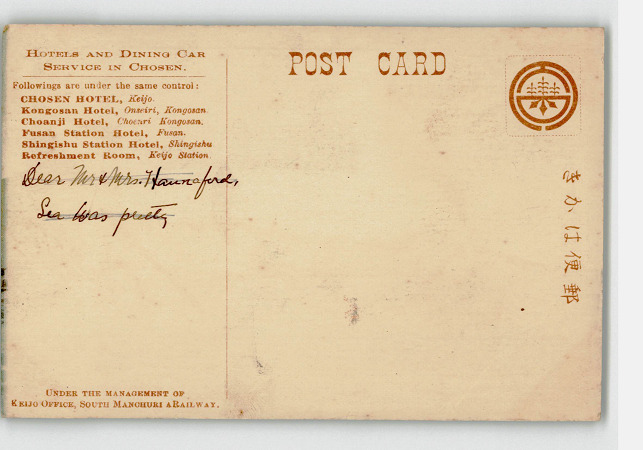 HOTELS AND DINING CAR
SERVICE IN CHOSEN.
Followings are under the same control:
CHOSEN HOTEL, Keijo.
Kongosan Hotel, Onseiri, Kongosan.
Choanji Hotel, Choanri Kongosan.
Fusan Station Hotel, Fusan.
Shingishu Station Hotel, Shingishu
Refreshment Room, Keijo Station.
Dear Mr & Mrs. Hannaford,
Sea was pretty
UNDER THE MANAGEMENT OF
KEIJO OFFICE, SOUTH MANCHURI A RAILWAY.
POST CARD
きかは便郵